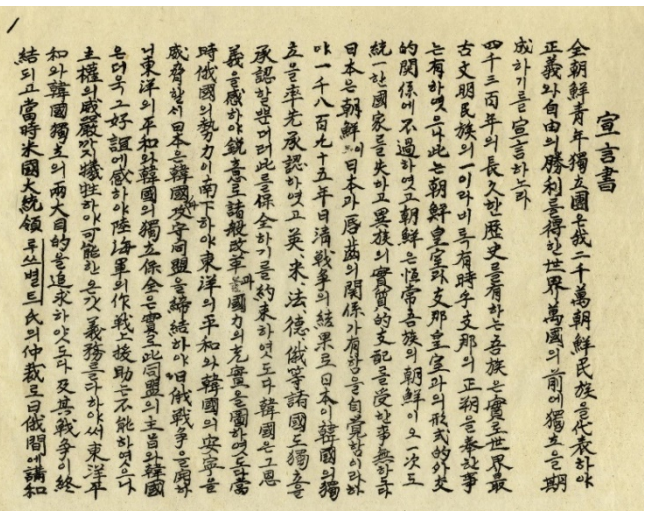 1
宣言書
全朝鮮青年獨立團은我二千萬朝鮮民族을代表하야
正義와自由의勝利를得한世界萬國의前에獨立을期
成하기를宣言하노라
四千三百年의長久한歷史를有하는吾族은實로世界最
古文明民族의一이라비록有時乎支那의正朔을奉한事
는有하엿으나此는朝鮮皇室과支那皇室과의形式的外交
的關係에不過하엿고朝鮮은恒常吾族의朝鮮이오一次도
統一한國家를失하고異族의實質的支配를受한事無하도다
日本은朝鮮이日本과唇齒의關係가有함을自覺함이라하
야一千八百九十五年日清戰爭의結果로日本이韓國의獨
立을率先承認하엿고英、米、法、德、俄等諸國도獨立을
承認할뿐더러此를保全하기를約束하엿도다韓國은그恩
義을感하야銳意로諸般改革과國力의充實을圖하엿도다當
時俄國의勢力이南下하야東洋의平和와韓國의安寧을
威脅할새日本은韓國과攻守同盟을締結하야日俄戰爭을開하
니東洋의平和와韓國의獨立保全은實로此同盟의主旨와韓國
은더욱그好誼에感하야陸海軍의作戰上援助는不能하엿으나
主權의威嚴까지犧牲하야可能한온갓義務를다하야써東洋平
和와韓國獨立의兩大目的을追求하얏도다及其戰爭이終
結되고當時米國大統領루쓰벨트氏의仲裁로日俄間에講和